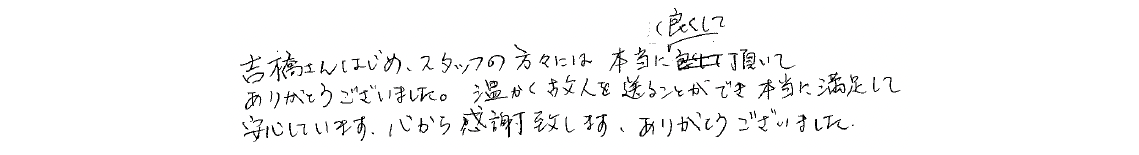 吉橋さんはじめ、スタッフの方々には 本当に良くして頂いて
ありがとうございました。温かく故人を送ることができ 本当に満足して
安心しています、心から感謝致します、ありがとうございました。